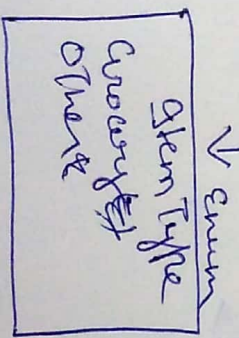 ↓ Enum
Item Type
Grocery
Others